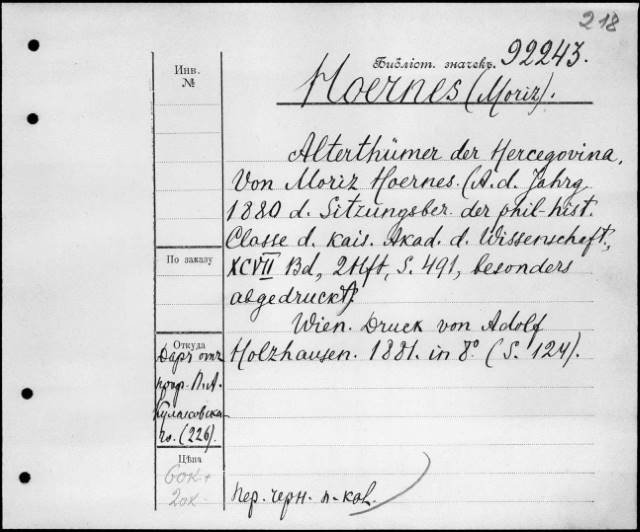 218
Инв.
№
Библіот. значекъ. 92243.
Hoernes (Moriz).
Alterthümer der Hercegovina.
Von Moriz Hoernes. (A. d. Jahrg.
1880 d. Sitzungsber. der phil-hist.
Classe d. kais. Akad. d. Wissenscheft.,
По заказу
XCVII Bd, 2Hft, S. 491, besonders
abgedruckt).
Wien. Druck von Adolf
Откуда
Holzhausen. 1881. in 8º. (S. 124).
Даръ отъ
проф. П. А.
Кулаковска-
го. (226).
Цѣна
60к +
20к
Пер. черн. п-кол.